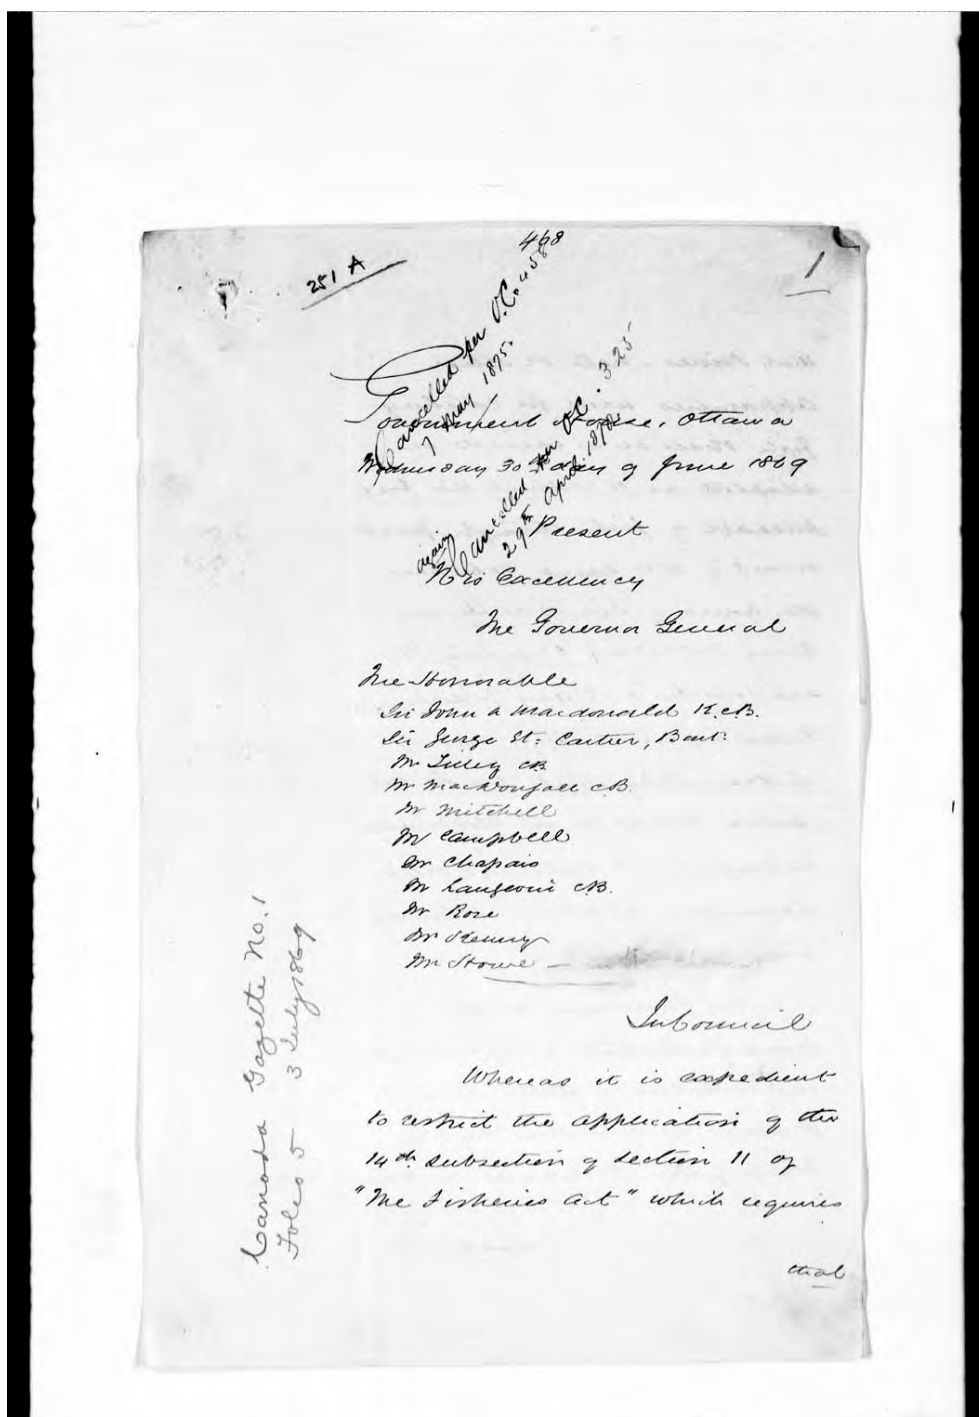 468
251 A
1
Cancelled per O.C. 458
7 May 1875.
again
Cancelled per O.C. 325
29th April 1878
Government House, Ottawa
Wednesday 30th day of June 1869
Present
His Excellency
The Governor General
The Honorable
Sir John A Macdonald K.C.B.
Sir George Et: Cartier, Bart:
Mr Tilley CB
Mr MacDougall CB.
Mr Mitchell
Mr Campbell
Mr Chapais
Mr Langevin CB.
Mr Rose
Mr Kenny
Mr Howe —
In Council
Whereas it is expedient
to restrict the application of the
14th subsection of section 11 of
"The Fisheries Act" which requires
that
Canada Gazette No. 1
Folio 5 3 July 1869